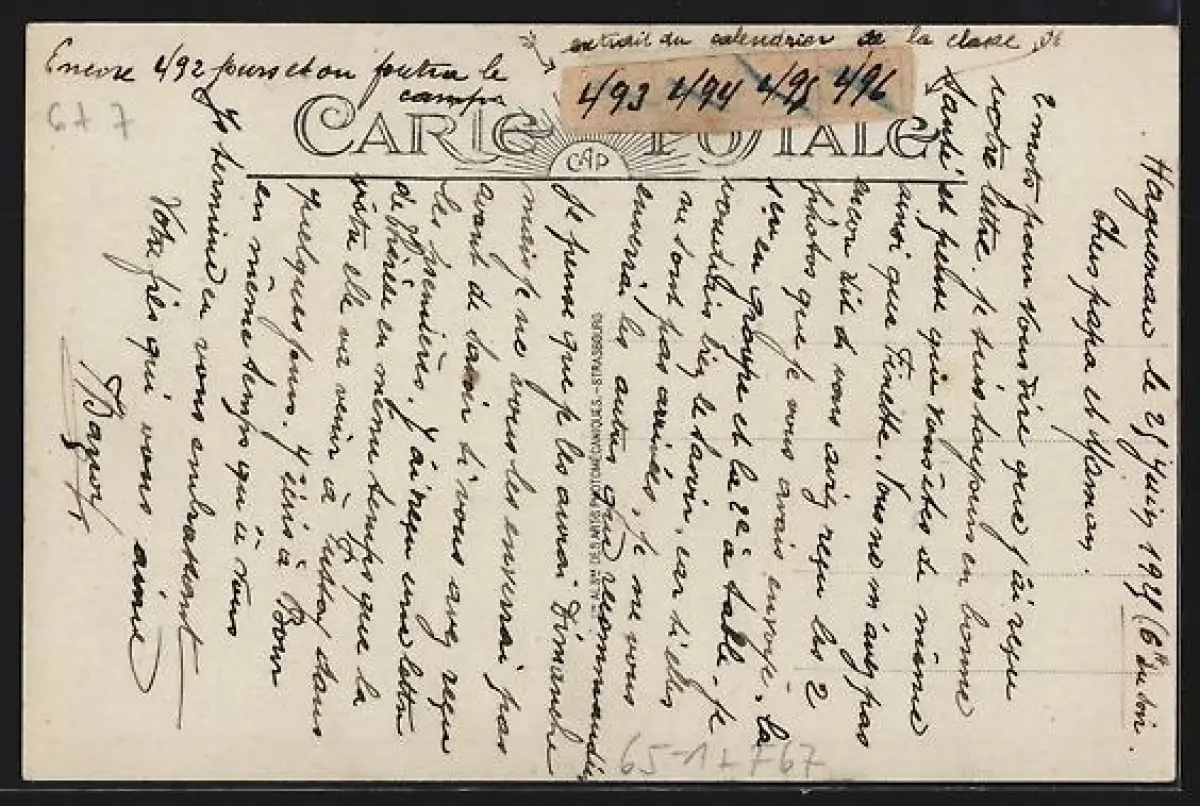 Encore 492 jours et on foutra le
camp
extrait du calendrier de la classe
493 494 495 496
6+7
CARTE POSTALE
CAP
Haguenau le 25 Juin 192 (6h du soir.
Cher papa et Maman,
2 mots pour vous dire que j'ai reçu
votre lettre. Je suis toujours en bonne
santé et pense que vous êtes de même
ainsi que Finette. Vous ne m'avez pas
encore dit si vous aviez reçu les 2
photos que je vous avais envoyé. la
1 en groupe et la 2e à table. je
voudrais bien le savoir, car si elles
ne sont pas arrivées, je ne vous
enverrai les autres que recommandées
je pense que je les aurai Dimanche
mais je ne vous les enverrai pas
avant de savoir si vous avez reçu
les premières. J'ai reçu une lettre
de Thérèse en même temps que la
vôtre elle va venir à dans
quelques jours. J'écris à
en même temps qu'à vous
Je termine en vous embrassant
Votre fils qui vous aime
D'ARTS PHOTOMÉCANIQUES - STRASBOURG
65-17767